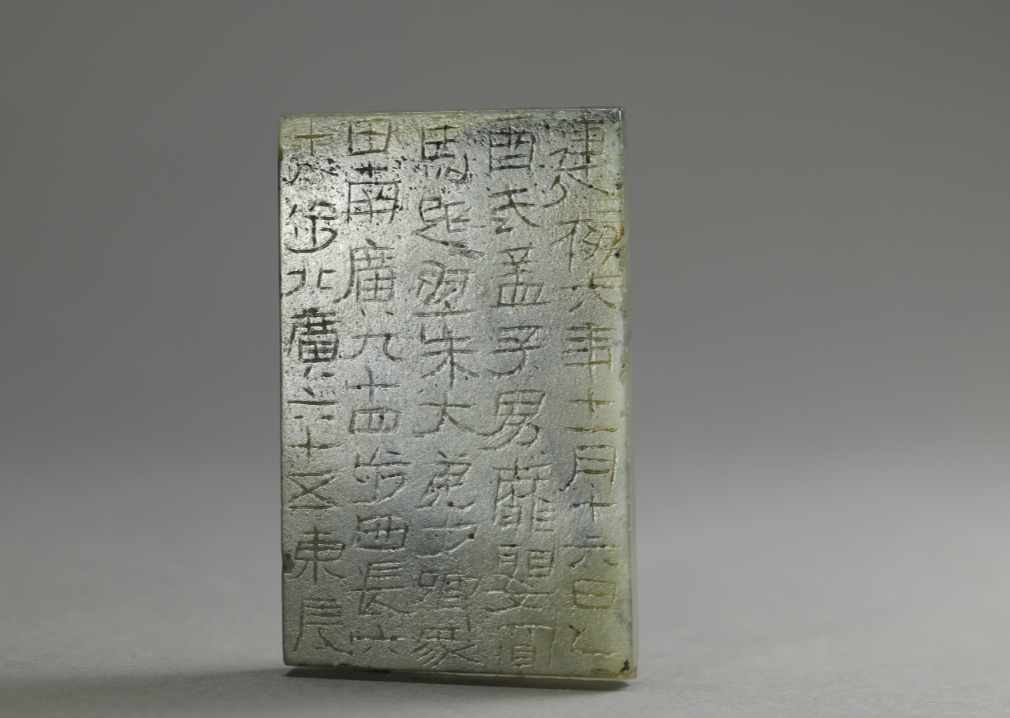 建初六年十一月十六日乙
酉武孟子男靡嬰買
馬熙宜朱大弟少卿冢
田南廣九十四步西長六
十八步北廣六十五東長